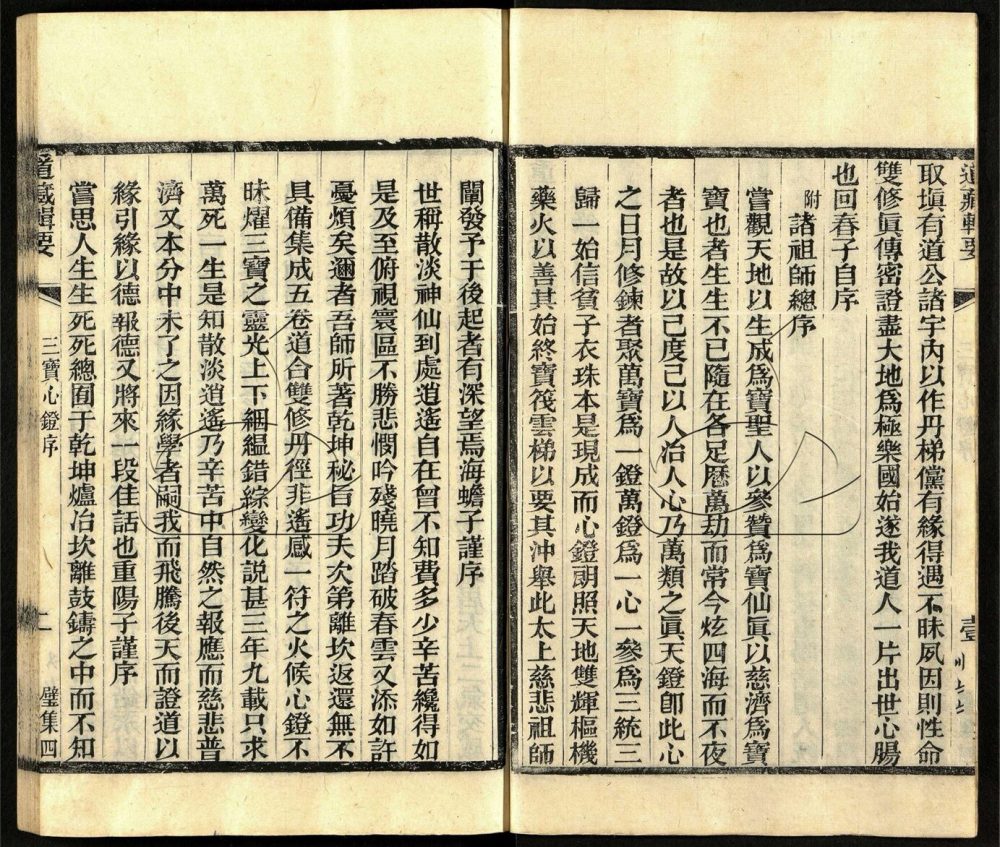 道藏輯要
取塡有道公諸宇內以作丹梯儻有緣得遇不昧夙因則性命
雙修眞傳密證盡大地爲極樂國始遂我道人一片出世心腸
也回春子自序
附諸祖師總序
嘗觀天地以生成爲寶聖人以參贊爲寶仙眞以慈濟爲寶
寶也者生生不已隨在各足歷萬劫而常今炫四海而不夜
者也是故以己度己以人治人心乃萬類之眞天鐙卽此心
之日月修鍊者聚萬寶爲一鐙萬鐙爲一心一參爲三統三
歸一始信貧子衣珠本是現成而心鐙朗照天地雙輝樞機
藥火以善其始終寶筏雲梯以要其沖舉此太上慈悲祖師
闡發予于後起者有深望焉海蟾子謹序
世稱散淡神仙到處逍遙自在曾不知費多少辛苦纔得如
是及至俯視寰區不勝悲憫吟殘曉月踏破春雲又添如許
憂煩矣邇者吾師所著乾坤秘旨功夫次第離坎返還無不
具備集成五卷道合雙修丹徑非遙感一符之火候心鐙不
昧燿三寶之靈光上下絪縕錯綜變化説甚三年九載只求
萬死一生是知散淡逍遙乃辛苦中自然之報應而慈悲普
濟又本分中未了之因緣學者嗣我而飛騰後天而證道以
緣引緣以德報德又將來一段佳話也重陽子謹序
嘗思人生生死死總囿于乾坤爐冶坎離鼓鑄之中而不知
道藏輯要
三寶心鐙序
二
璧集四